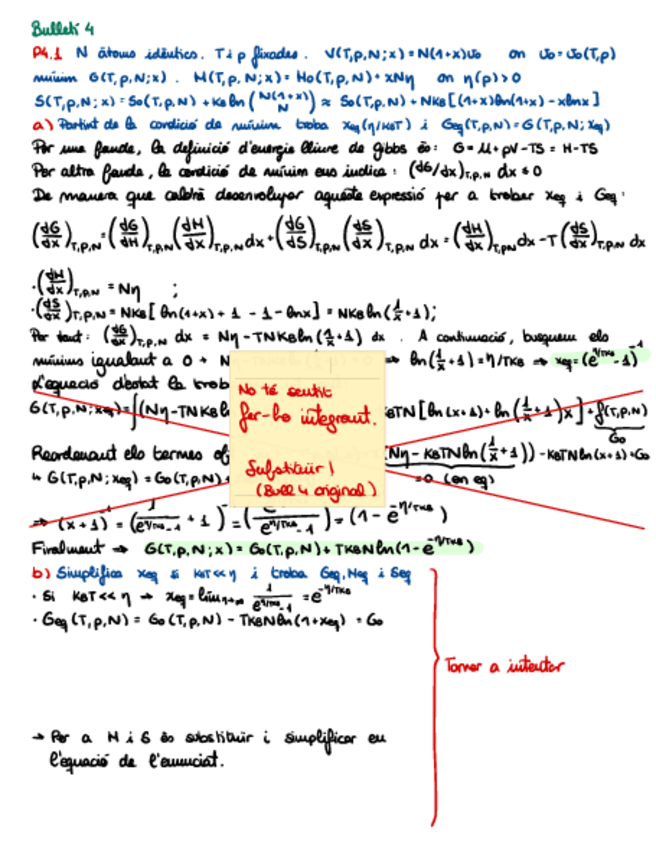 Bulletí 4
P4.1 N àtoms idèntics. T i p fixades. V(T,p,N;x)=N(1+x)υo on υo=υo(T,p)
mínim G(T,p,N;x). H(T,p,N;x)=Ho(T,p,N)+xNη on η(p)>0
S(T,p,N;x)=So(T,p,N)+KB ln (N(1+x) N) ≈ So(T,p,N)+NKB[(1+x)ln(1+x)-xlnx]
a) Partint de la condició de mínim troba xeq(η/KBT) i Geq(T,p,N)=G(T,p,N;xeq)
Per una banda, la definició d'energia lliure de Gibbs és: G=U+pV-TS=H-TS
Per altra banda, la condició de mínim ens indica: (dG/dx)T,p,N dx=0
De manera que caldrà desenvolupar aquesta expressió per a trobar xeq i Geq:
(dG/dx)T,p,N=(dG/dH)T,p,N(dH/dx)T,p,N dx+(dG/dS)T,p,N(dS/dx)T,p,N dx=(dH/dx)T,p,N dx-T(dS/dx)T,p,N dx
·(dH/dx)T,p,N=Nη ;
·(dS/dx)T,p,N=NKB[ln(1+x)+1-1-lnx]=NKB ln(1/x+1);
Per tant: (dG/dx)T,p,N dx=Nη-TNKB ln(1/x+1) dx. A continuació, busquem els
mínims igualant a 0 → N ⇒ ln(1/x+1)=η/TKB ⇒ xeq=(e^η/TKB-1)^-1
L'equació d'estat la trob
G(T,p,N;xeq)=∫(Nη-TNKB ln KBTN[ln(x+1)+ln(1/x+1)x]+f(T,p,N)
Go
No té sentit
fer-ho integrant.
Substituir!
(Bull 4 original)
Reordenant els termes (Nη-KBTN ln(1/x+1))-KBTN ln(x+1)+Go
↳ G(T,p,N;xeq)=Go(T,p,N) =0 (en eq)
⇒ (x+1)^-1=(1/(e^η/TKB-1)+1)^-1=(e^η/TKB/(e^η/TKB-1))^-1=(1-e^-η/TKB)
Finalment ⇒ G(T,p,N;x)=Go(T,p,N)+TKBN ln(1-e^-η/TKB)
b) Simplifica xeq si KBT<<η i troba Geq, Heq i Seq
· Si KBT<<η → xeq=lim η→∞ 1/(e^η/TKB-1)=e^-η/TKB
· Geq(T,p,N)=Go(T,p,N)-TKBN ln(1+xeq)=Go
Tornar a intentar
→ Per a H i S és substituir i simplificar en
l'equació de l'enunciat.